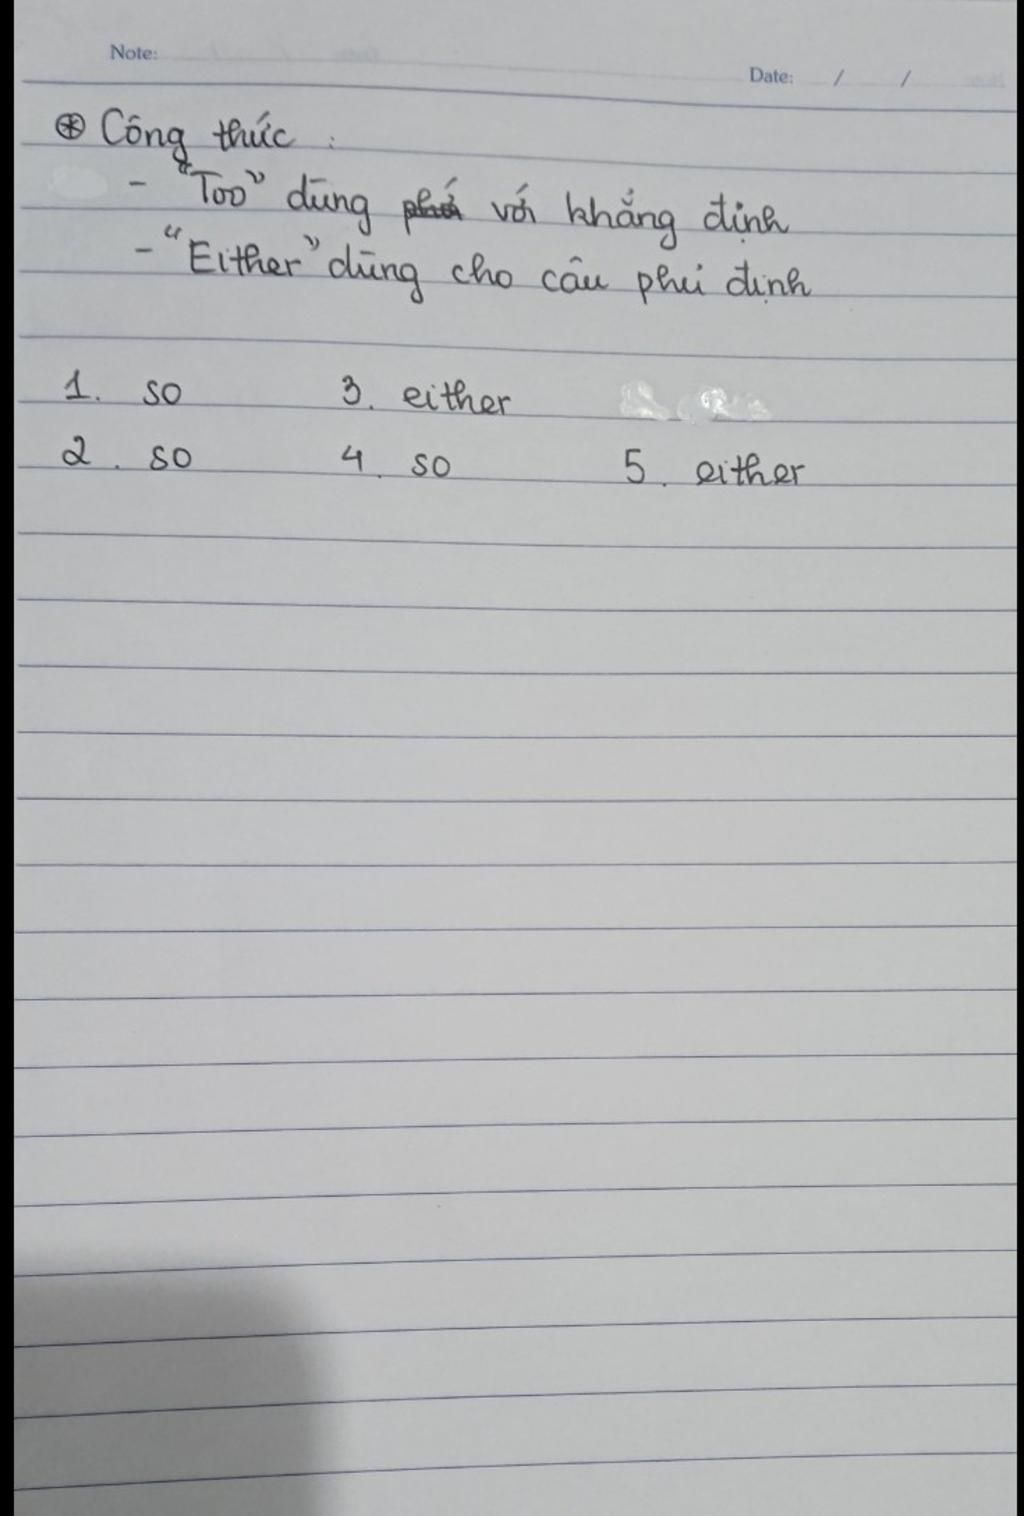 Note:
Date: / /
⊛ Công thức :
- "Too" dùng với khẳng định
- "Either" dùng cho câu phủ định
1. so 3. either
2. so 4. so 5. either